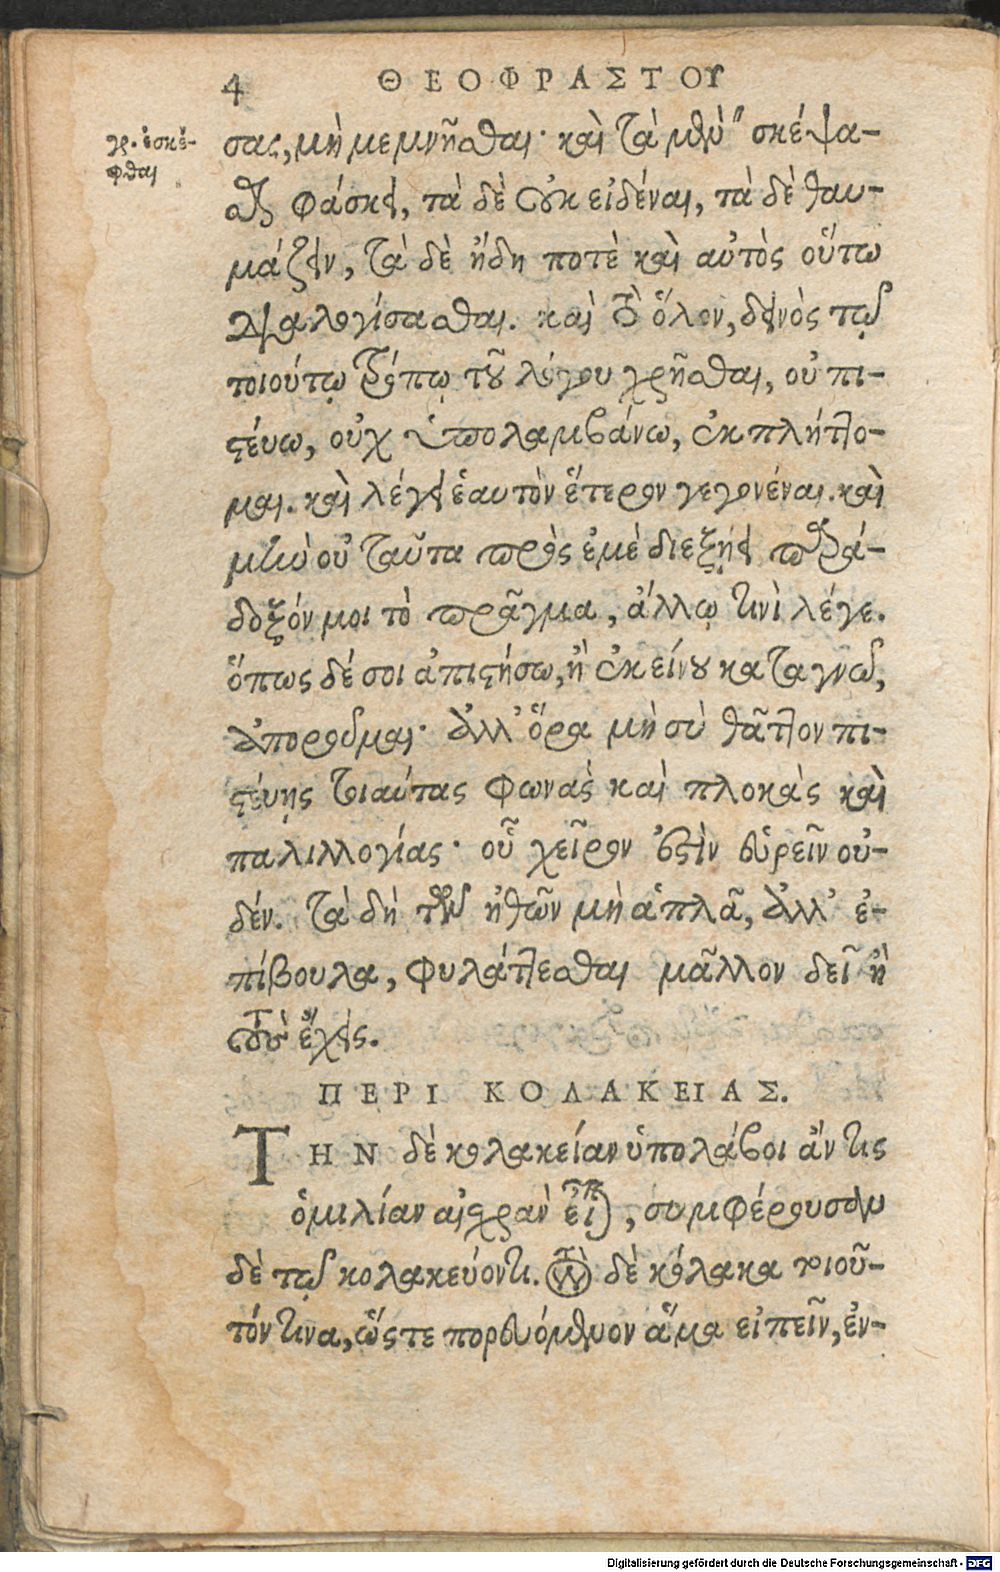 4 ΘΕΟΦΡΑΣΤΟΥ
γρ. ἐσκέ-
φθαι
σας, μὴ μεμνῆσθαι· καὶ τὰ μὲν σκέψα-
σθαι φάσκει, τὰ δὲ οὐκ εἰδέναι, τὰ δὲ θαυ-
μάζειν, τὰ δὲ ἤδη ποτὲ καὶ αὐτὸς οὕτω
διαλογίσασθαι. καὶ τὸ ὅλον, δεινὸς τῷ
τοιούτῳ τρόπῳ τοῦ λόγου χρῆσθαι, οὐ πι-
στεύω, οὐχ ὑπολαμβάνω, ἐκπλήττο-
μαι. καὶ λέγει ἑαυτὸν ἕτερον γεγονέναι. καὶ
μὴν οὐ ταῦτα πρὸς ἐμὲ διεξῄει παρά-
δοξόν μοι τὸ πρᾶγμα, ἄλλῳ τινὶ λέγε.
ὅπως δέ σοι ἀπιστήσω, ἢ ἐκείνου καταγνῶ,
ἀποροῦμαι· ἀλλ' ὅρα μὴ σὺ θᾶττον πι-
στεύῃς τοιαύτας φωνὰς καὶ πλοκὰς καὶ
παλιλλογίας· οὗ χεῖρον ἐστὶν εὑρεῖν οὐ-
δέν. τὰ δὴ τῶν ἠθῶν μὴ ἁπλᾶ, ἀλλ' ἐ-
πίβουλα, φυλάττεσθαι μᾶλλον δεῖ ἢ
τοὺς ἔχεις.
ΠΕΡΙ ΚΟΛΑΚΕΙΑΣ.
ΤΗΝ δὲ κολακείαν ὑπολάβοι ἄν τις
ὁμιλίαν αἰσχρὰν εἶναι, συμφέρουσαν
δὲ τῷ κολακεύοντι. τὸν δὲ κόλακα τοιοῦ-
τόν τινα, ὥστε πορευόμενον ἅμα εἰπεῖν, ἐν-
Digitalisierung gefördert durch die Deutsche Forschungsgemeinschaft - DFG